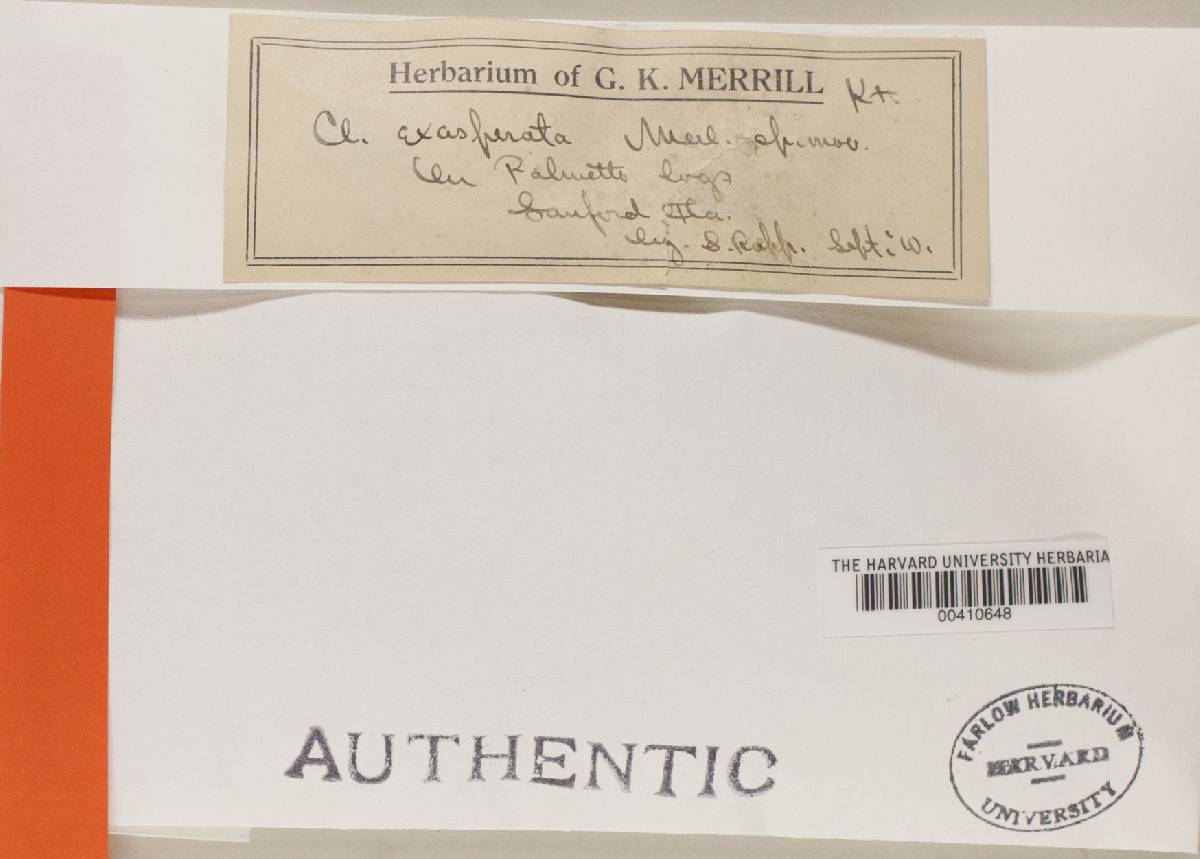 Herbarium of G. K. MERRILL
K+.
Cl. exasperata Merl. sp. nov.
On Palmetto logs
Sanford Fla.
leg. S. Rapp. Sept.
THE HARVARD UNIVERSITY HERBARIA
00410648
AUTHENTIC
FARLOW HERBARIUM
HARVARD
UNIVERSITY